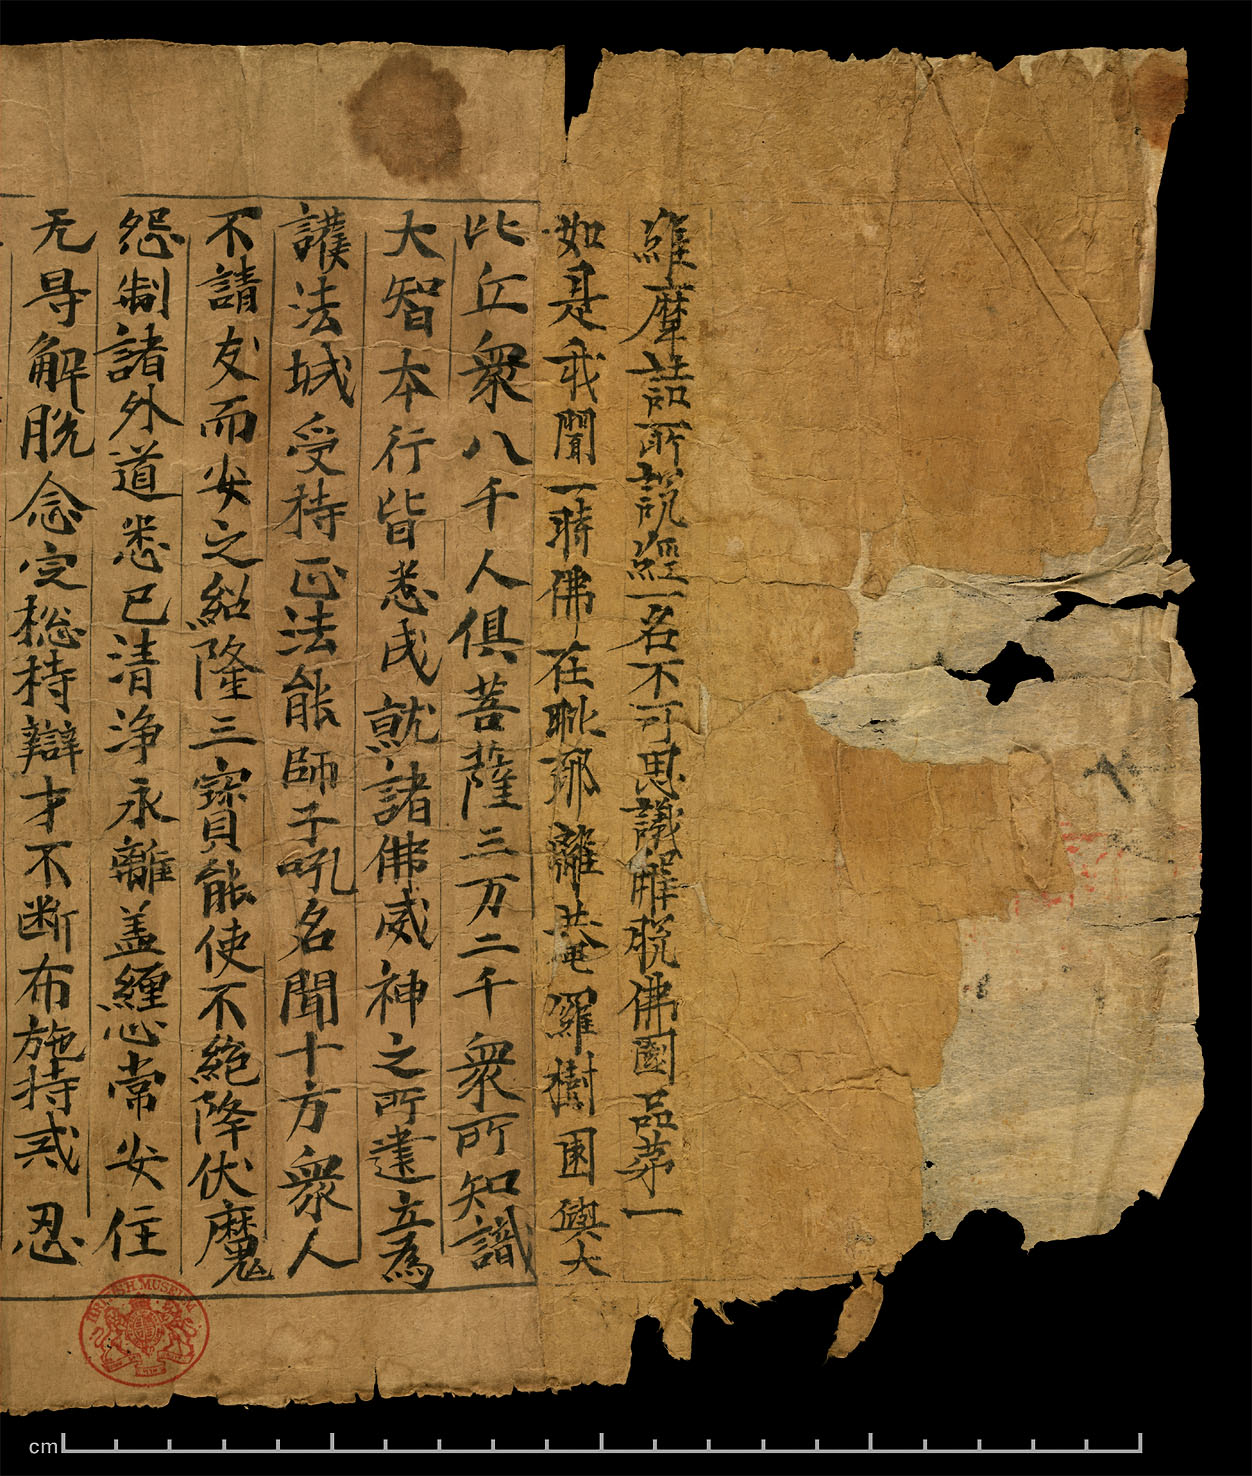 維摩詰所說經一名不可思議解脫佛國品第一
如是我聞一時佛在毗耶離菴羅樹園與大
比丘衆八千人俱菩薩三万二千衆所知識
大智本行皆悉成就諸佛威神之所建立為
護法城受持正法能師子吼名聞十方衆人
不請友而安之紹隆三寶能使不絶降伏魔
怨制諸外道悉已清淨永離盖纏心常安住
无导解脫念定揔持辯才不断布施持戒忍
BRITISH MUSEUM
cm